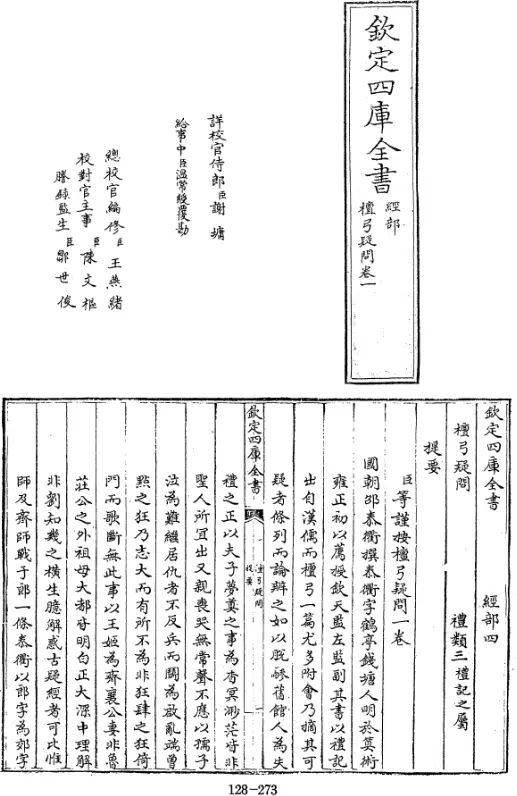 欽定四庫全書
經部
檀弓疑問卷一
詳校官侍郎臣謝墉
給事中臣溫常綬覆勘
總校官編修臣王燕緒
校對官主事臣陳文樞
謄錄監生臣鄒世俊
欽定四庫全書
經部四
檀弓疑問
禮類三禮記之屬
提要
臣等謹按檀弓疑問一卷
國朝邵泰衢撰泰衢字鶴亭錢塘人明於算術
雍正初以薦授欽天監左監副其書以禮記
出自漢儒而檀弓一篇尤多附會乃摘其可
疑者條列而論辨之如以脫驂舊館人為失
欽定四庫全書
檀弓疑問
提要
一
禮之正以夫子夢奠之事為杳冥渺茫皆非
聖人所宜出又親喪哭無常聲不應以孺子
泣為難繼居仇者不反兵而鬭為啟亂端曾
點之狂乃志大而有所不為非狂肆之狂倚
門而歌斷無此事以王姬為齊襄公妻非魯
莊公之外祖母大都皆明白正大深中理解
非劉知幾之横生臆解惑古疑經者可比惟
師及齊師戰于郎一條泰衢以郎字為郊字
128-273